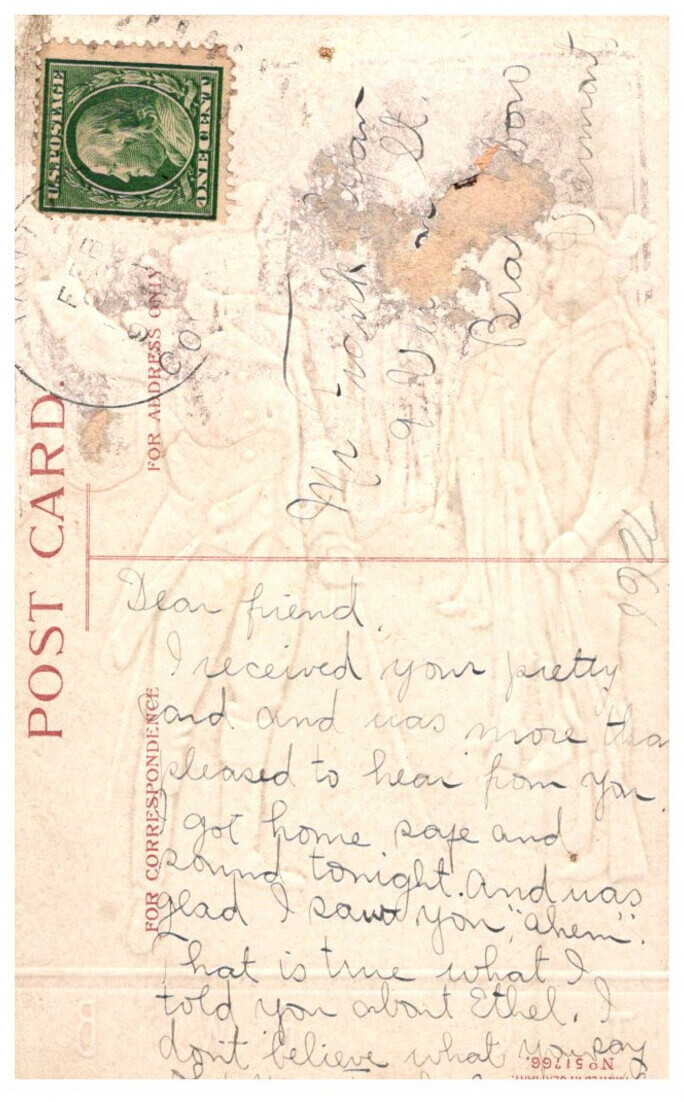 U.S. POSTAGE
ONE CENT
CO
POST CARD.
FOR ADDRESS ONLY
Mr
9 St.
Vermont
FOR CORRESPONDENCE
Dear friend.
I received your pretty
card and was more than
pleased to hear from you.
I got home safe and
sound tonight. And was
glad I saw you, "ahem".
That is true what I
told you about Ethel. I
don't believe what you say
No 51766.